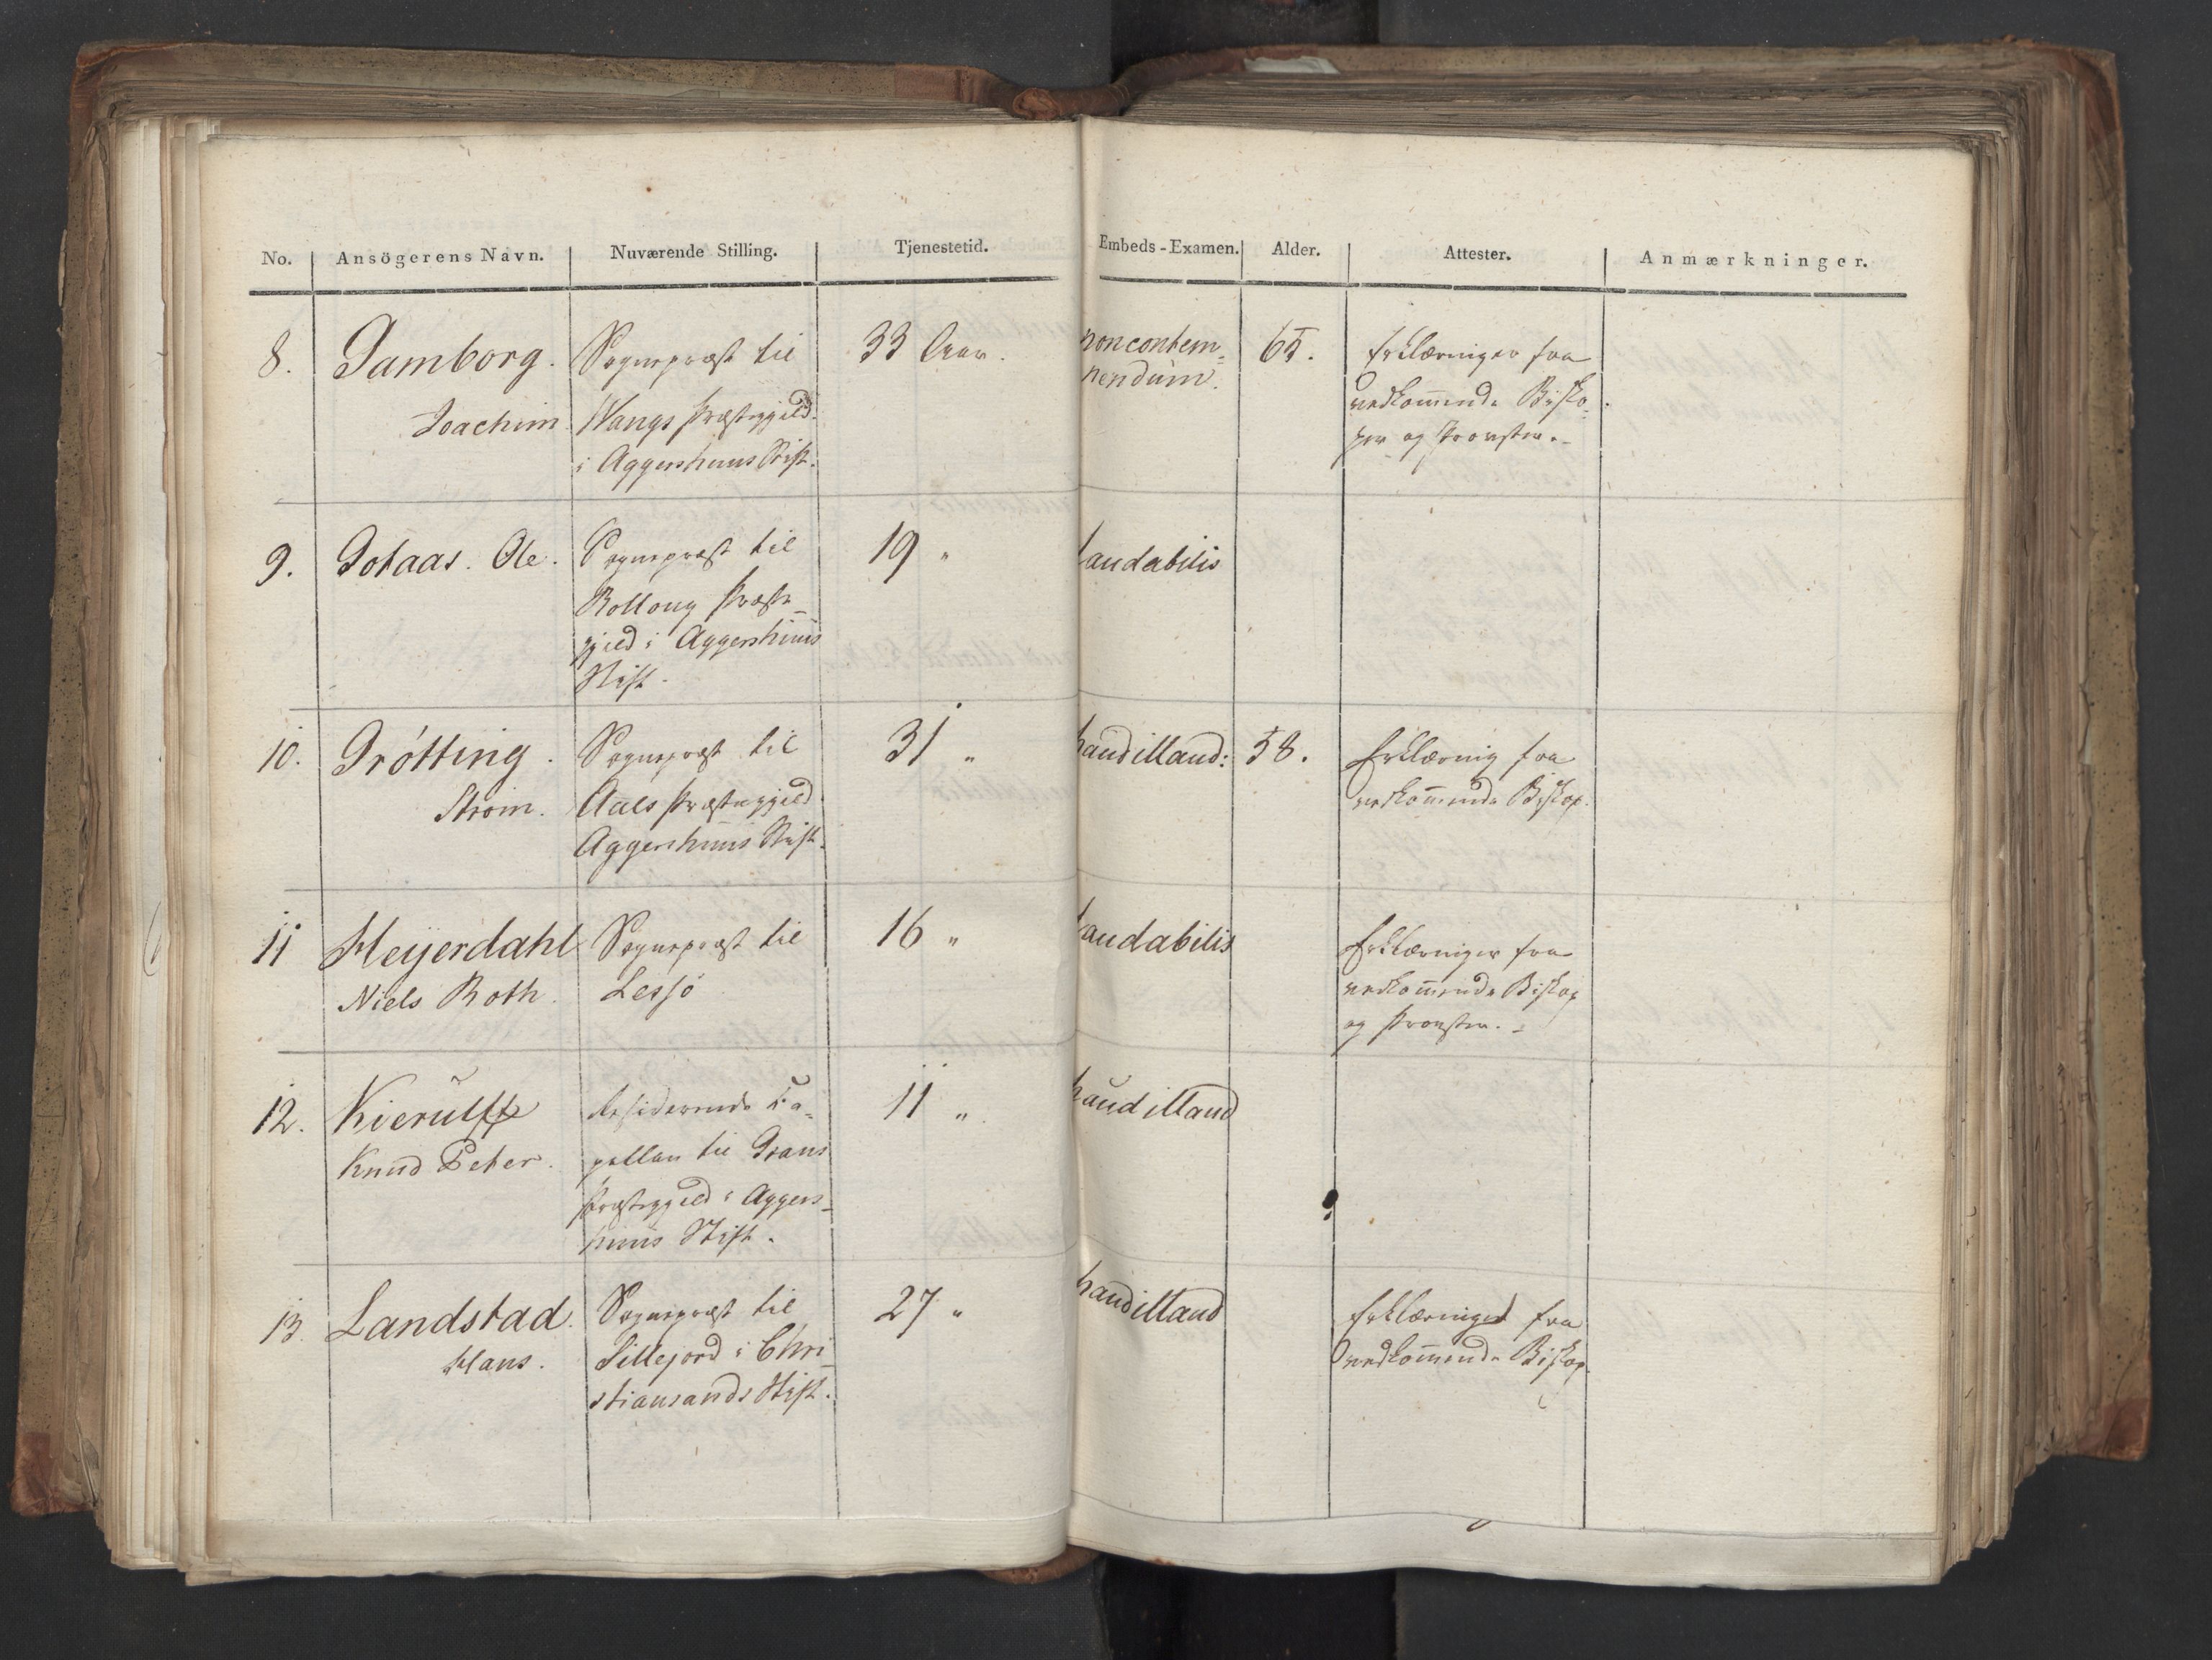 No. Ansögerens Navn. Nuværende Stilling. Tjenestetid. Embeds-Examen. Alder. Attester. Anmærkninger.
8. Gamborg. Sognepræst til 33 Aar. noncontem- 65. Erklæringer fra
Joachim Wangs Præstegjeld nendum. vedkommende Bisko-
i Aggershuus Stift. per og Provster.
9. Gotaas. Ole. Sognepræst til 19 " laudabilis
Rolloug Præste-
gjeld i Aggershuus
Stift.
10. Grøtting. Sognepræst til 31 " haud illaud: 58. Erklæring fra
Strøm. Aals Præstegjeld vedkommende Biskop.
Aggershuus Stift.
11 Heyerdahl Sognepræst til 16 " laudabilis Erklæringer fra
Niels Roth. Lessø vedkommende Biskop
og Provster.
12. Kierulff Residerende Ca- 11 " haud illaud
Knud Peter. pellan til Grans
Præstegjeld i Aggers-
huus Stift.
13. Landstad. Sognepræst til 27 " haud illaud Erklæringer fra
Hans. Sillejord i Chri- vedkommende Biskop.
stiansands Stift.